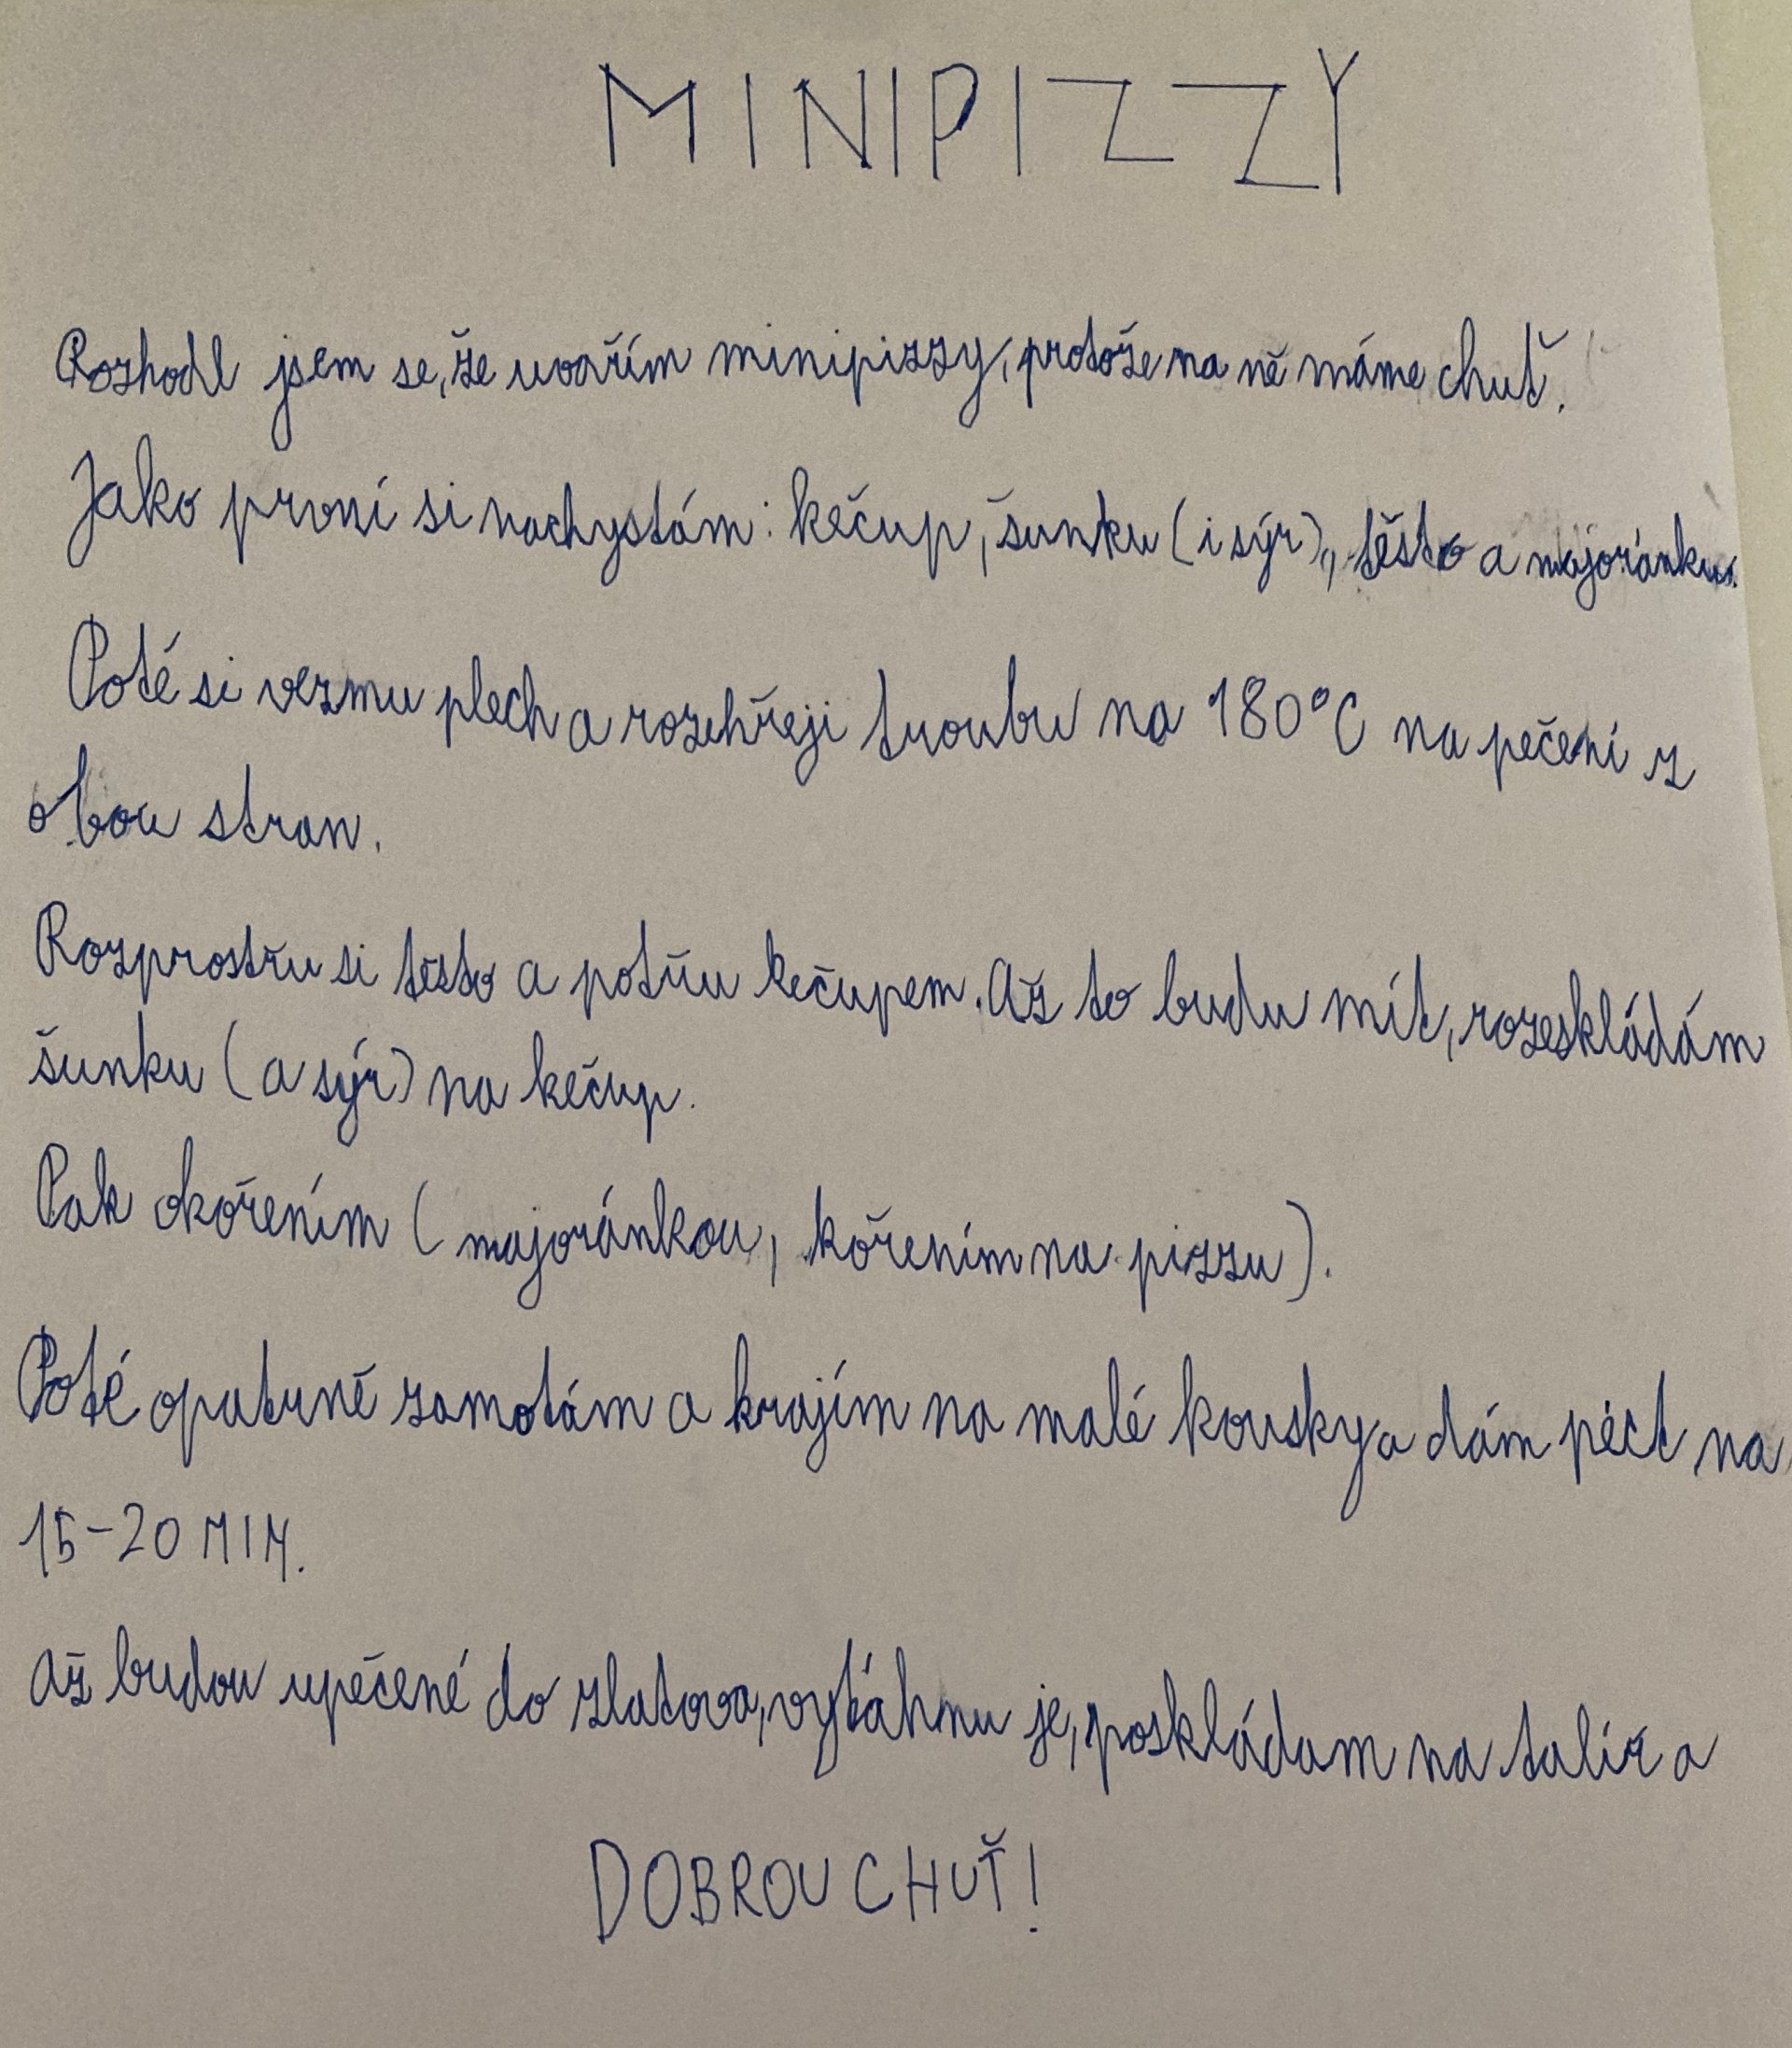 MINIPIZZY
Rozhodl jsem se, že uvařím minipizzy, protože na ně máme chuť.
Jako první si nachystám: kečup, šunku (i sýr), těsto a majoránku.
Poté si vezmu plech a rozehřeji troubu na 180°C na pečení z
obou stran.
Rozprostřu si těsto a potřu kečupem. Až to budu mít, rozeskládám
šunku (a sýr) na kečup.
Pak okořením (majoránkou, kořením na pizzu).
Poté opatrně zamotám a krajím na malé kousky a dám péct na
15-20 MIN.
Až budou upečené do zlatova, vytáhnu je, poskládam na talíř a
DOBROU CHUŤ!